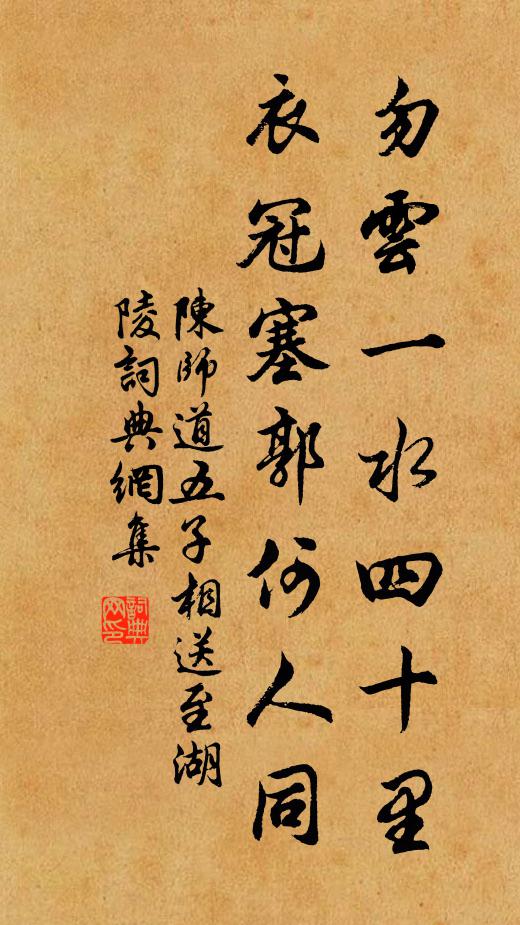 勿雲一水四十里
衣冠塞郭何人同
陳師道五子相送至湖
陵詞典網集
詞典
网印